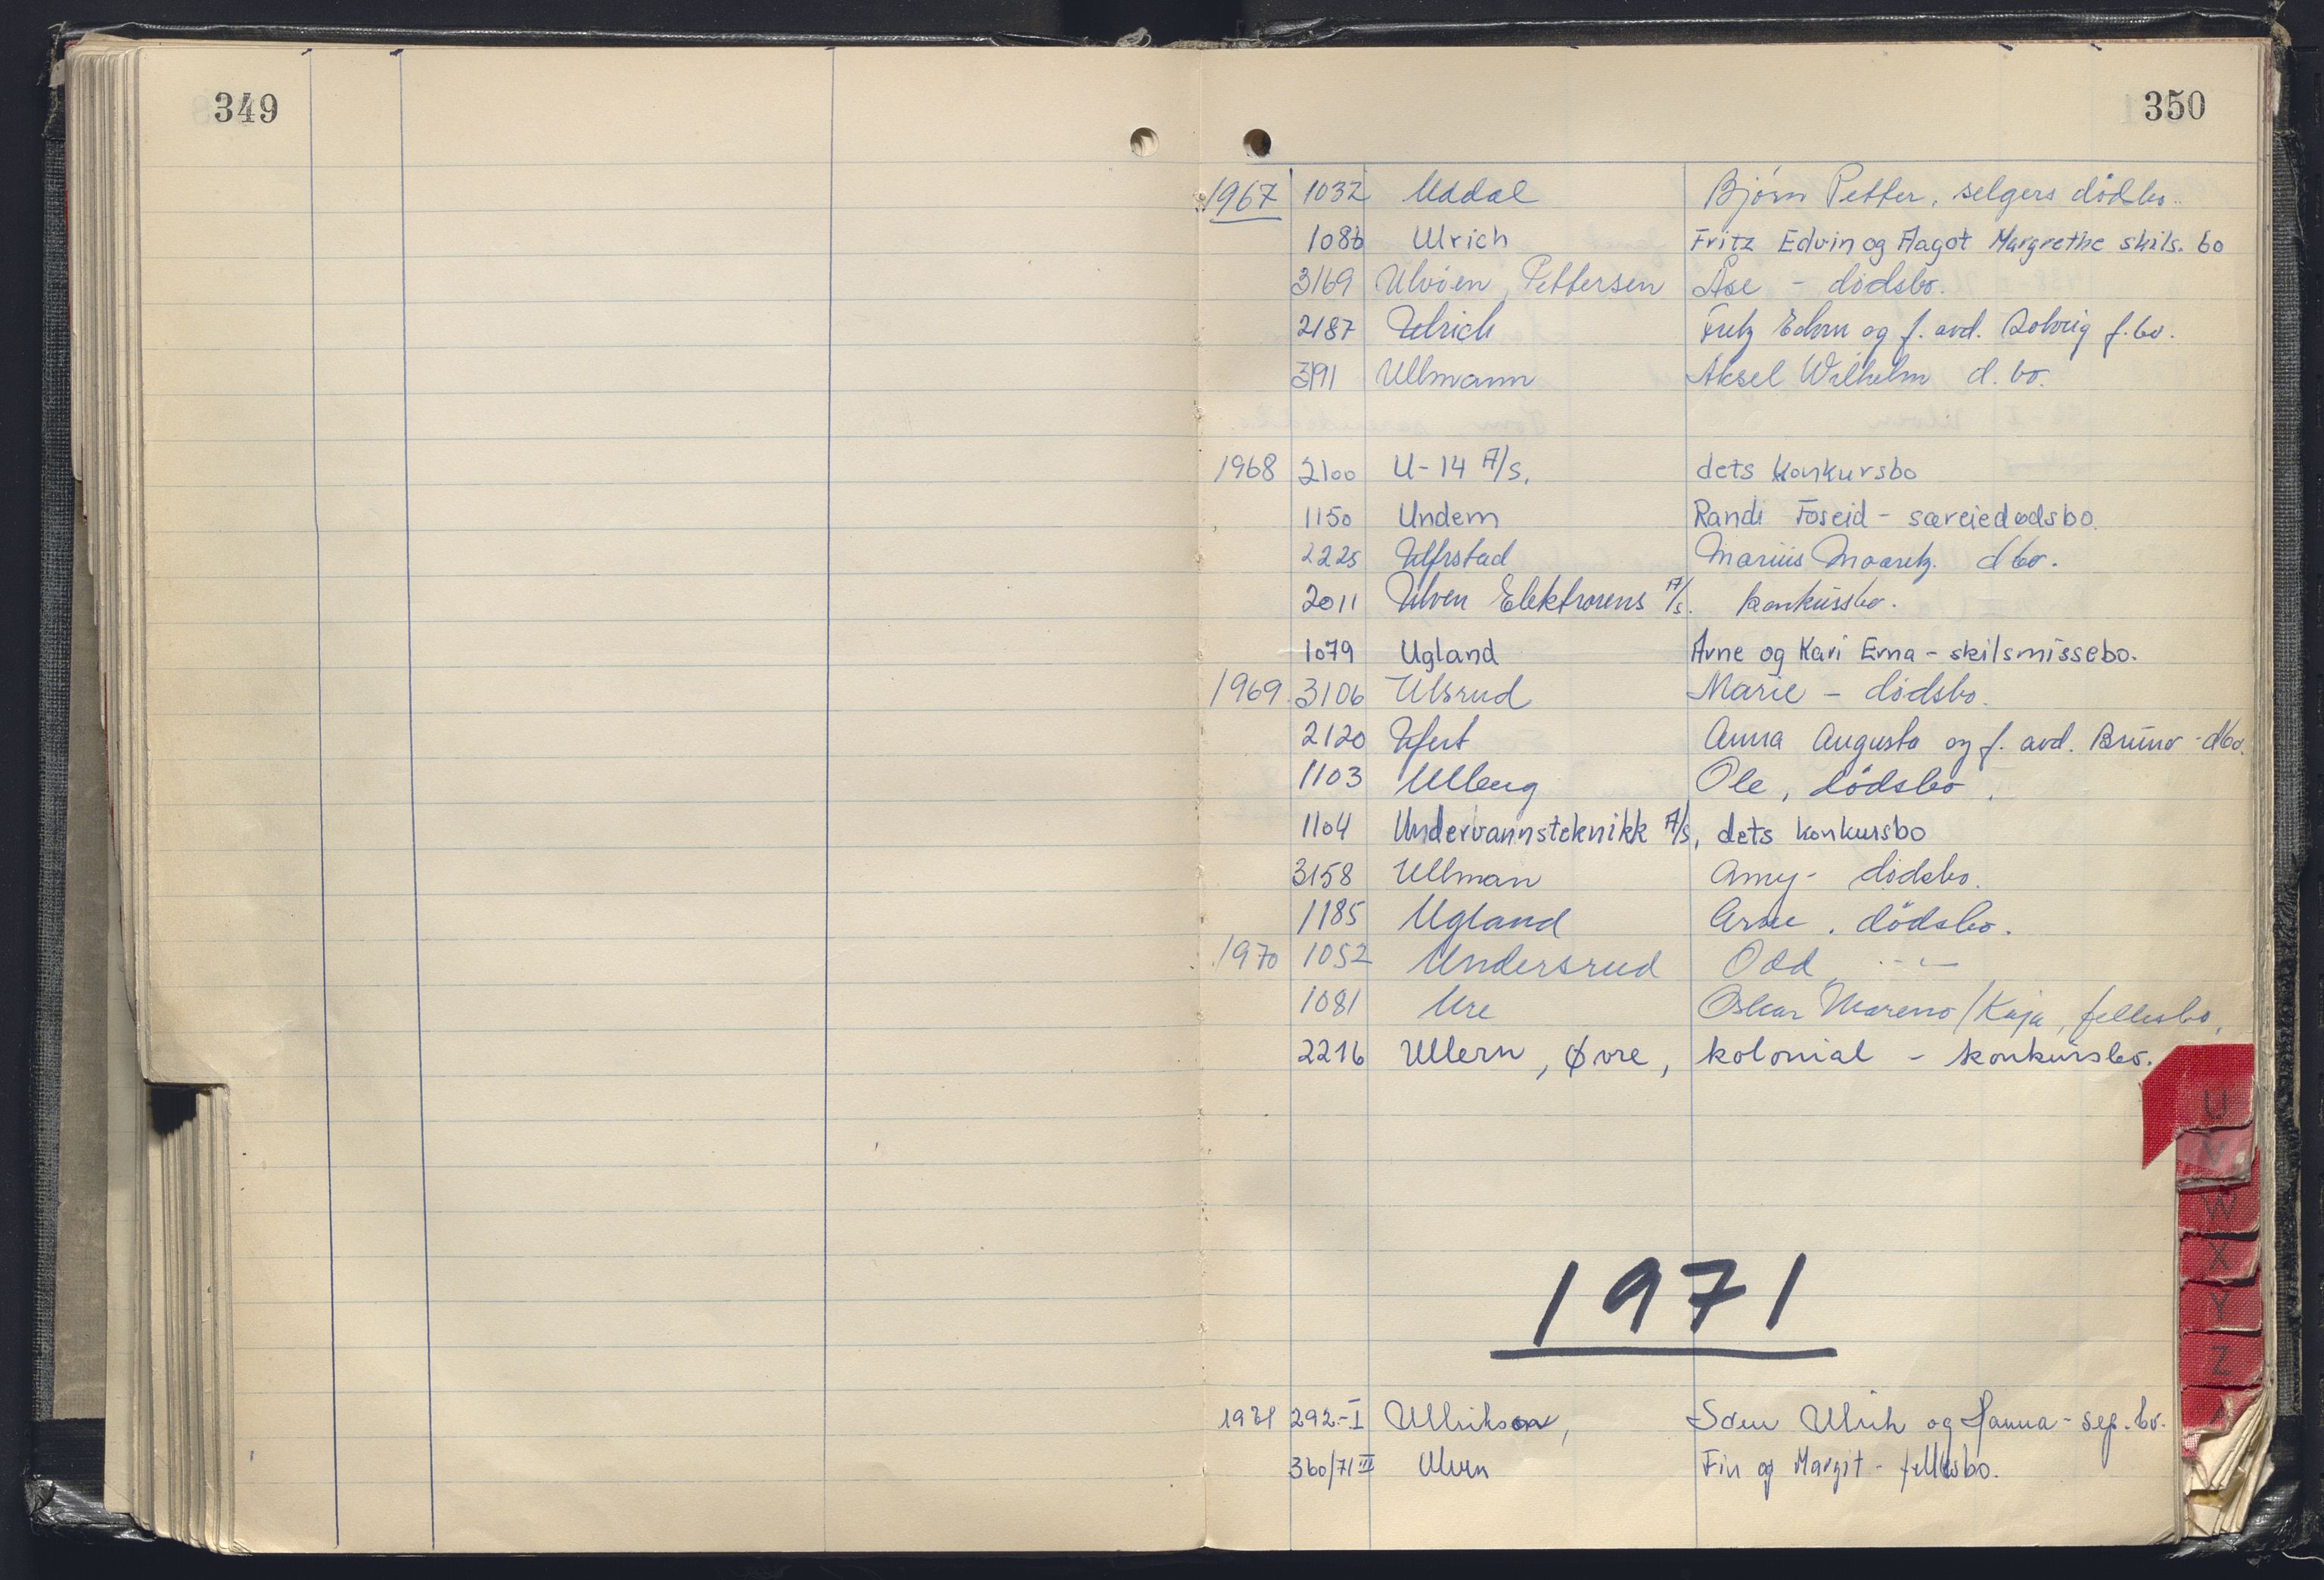 349
350
1967 1032 Uddal Bjørn Petter, selgers dødbo.
1086 Ulrich Fritz Edvin og Aagot Margrethe skils. bo
3169 Ulvøen, Pettersen Åse - dødsbo.
2187 Ulrich Fritz Edvin og f. avd. Solveig f.bo.
3191 Ullmann Aksel Wilhelm d. bo.
1968 2100 U-14 A/S, dets konkursbo
1150 Undem Randi Foseid - særeiedødsbo.
2225 Ulfrstad Marius d bo.
2011 Ulven Elektrorens A/s. konkursbo.
1079 Ugland Arne og Kari Erna - skilsmissebo.
1969. 3106 Ulsrud Marie - dødsbo.
2120 Ufert Anna Augusta og f. avd. Bruno - dbo.
1103 Ulleberg Ole, dødsbo.
1104 Undervannsteknikk A/S, dets konkursbo
3158 Ullman Amy - dødsbo.
1185 Ugland Arne, dødsbo.
1970 1052 Undersrud Odd, -"-
1081 Ure Oskar Mareno/Kaja, fellesbo,
2216 Ullern, Øvre, kolonial - konkursbo.
U
V
W
X
Y
Z
1971
1971 292-I Ullrikson, Ulrik og Hanna - sep. bo.
360/71 III Ulven Fin og Margit - fellesbo.